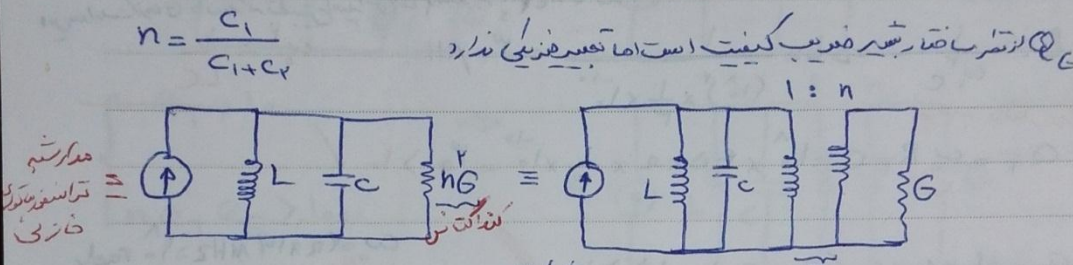 n = C₁ / (C₁+C₂)
Q_E از نظر ساختار شبیه ضریب کیفیت است اما تعبیر فیزیکی ندارد
مدار شبه
ترانسفورماتوری
خازنی
≡
L
C
n²G
کنداکتانس
≡
1 : n
L
C
G